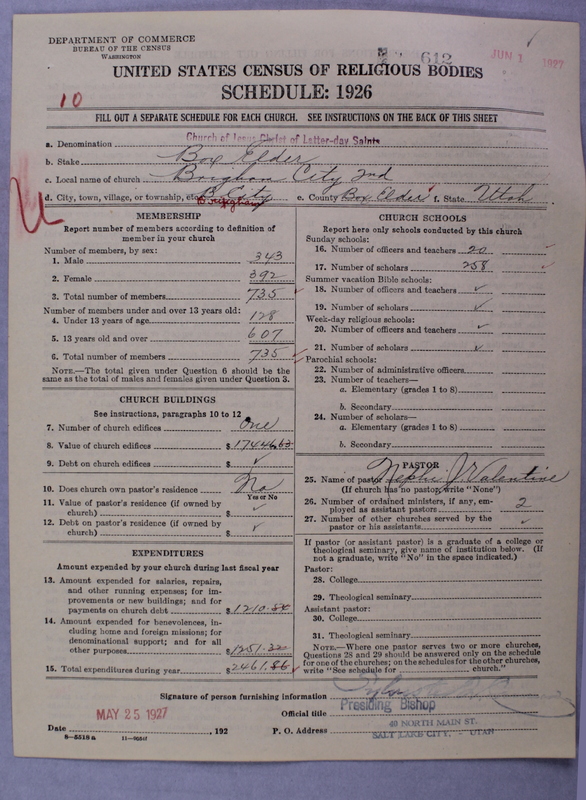 DEPARTMENT OF COMMERCE
BUREAU OF THE CENSUS
WASHINGTON
612
JUN 1 1927
UNITED STATES CENSUS OF RELIGIOUS BODIES
SCHEDULE: 1926
10
FILL OUT A SEPARATE SCHEDULE FOR EACH CHURCH. SEE INSTRUCTIONS ON THE BACK OF THIS SHEET
a. Denomination Church of Jesus Christ of Latter-day Saints
b. Stake Box Elder
c. Local name of church Brigham City 2nd
d. City, town, village, or township, etc. B. City Brigham e. County Box Elder f. State Utah
MEMBERSHIP
Report number of members according to definition of member in your church
Number of members, by sex:
1. Male 343
2. Female 392
3. Total number of members 735
Number of members under and over 13 years old:
4. Under 13 years of age 128
5. 13 years old and over 607
6. Total number of members 735
NOTE.—The total given under Question 6 should be the same as the total of males and females given under Question 3.
CHURCH BUILDINGS
See instructions, paragraphs 10 to 12
7. Number of church edifices One
8. Value of church edifices $17446.63
9. Debt on church edifices $ ✓
10. Does church own pastor's residence No
Yes or No
11. Value of pastor's residence (if owned by church) $ ✓
12. Debt on pastor's residence (if owned by church) $ ✓
EXPENDITURES
Amount expended by your church during last fiscal year
13. Amount expended for salaries, repairs, and other running expenses; for improvements or new buildings; and for payments on church debt $1210.54
14. Amount expended for benevolences, including home and foreign missions; for denominational support; and for all other purposes $1251.32
15. Total expenditures during year $2461.86
CHURCH SCHOOLS
Report here only schools conducted by this church
Sunday schools:
16. Number of officers and teachers 20
17. Number of scholars 258
Summer vacation Bible schools:
18. Number of officers and teachers ✓
19. Number of scholars ✓
Week-day religious schools:
20. Number of officers and teachers ✓
21. Number of scholars ✓
Parochial schools:
22. Number of administrative officers
23. Number of teachers—
a. Elementary (grades 1 to 8)
b. Secondary
24. Number of scholars—
a. Elementary (grades 1 to 8)
b. Secondary
PASTOR
25. Name of pastor Nephi J. Valentine
(If church has no pastor, write "None")
26. Number of ordained ministers, if any, employed as assistant pastors 2
27. Number of other churches served by the pastor or his assistants ✓
If pastor (or assistant pastor) is a graduate of a college or theological seminary, give name of institution below. (If not a graduate, write "No" in the space indicated.)
Pastor:
28. College
29. Theological seminary
Assistant pastor:
30. College
31. Theological seminary
NOTE.—Where one pastor serves two or more churches, Questions 28 and 29 should be answered only on the schedule for one of the churches; on the schedules for the other churches, write "See schedule for church."
Signature of person furnishing information
Official title Presiding Bishop
MAY 25 1927
Date , 192 P. O. Address 40 NORTH MAIN ST.
SALT LAKE CITY, - UTAH
8—5518 a